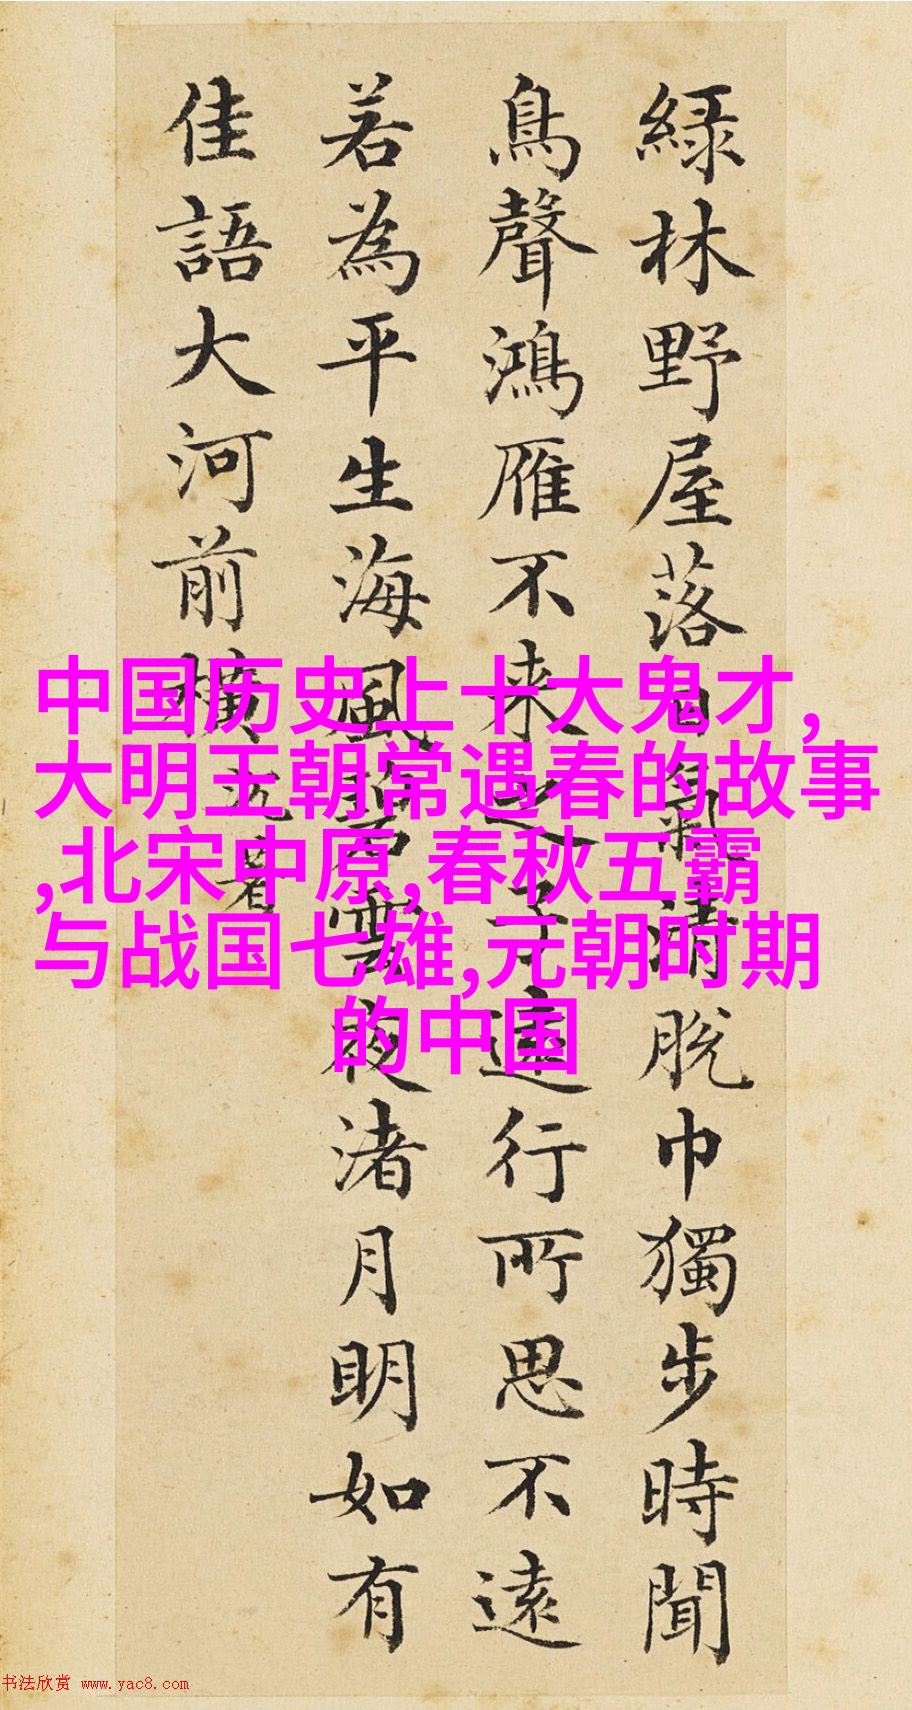 緑林野屋落日氣清脱巾獨步時聞
鳥聲鴻雁不来之子遠行所思不遠
若為平生海風碧雲夜渚月明如有
佳語大河前橫
沉著
中国历史上十大鬼才,
大明王朝常遇春的故事
,北宋中原,春秋五霸
与战国七雄,元朝时期
的中国
书法欣赏 www.yac8.com